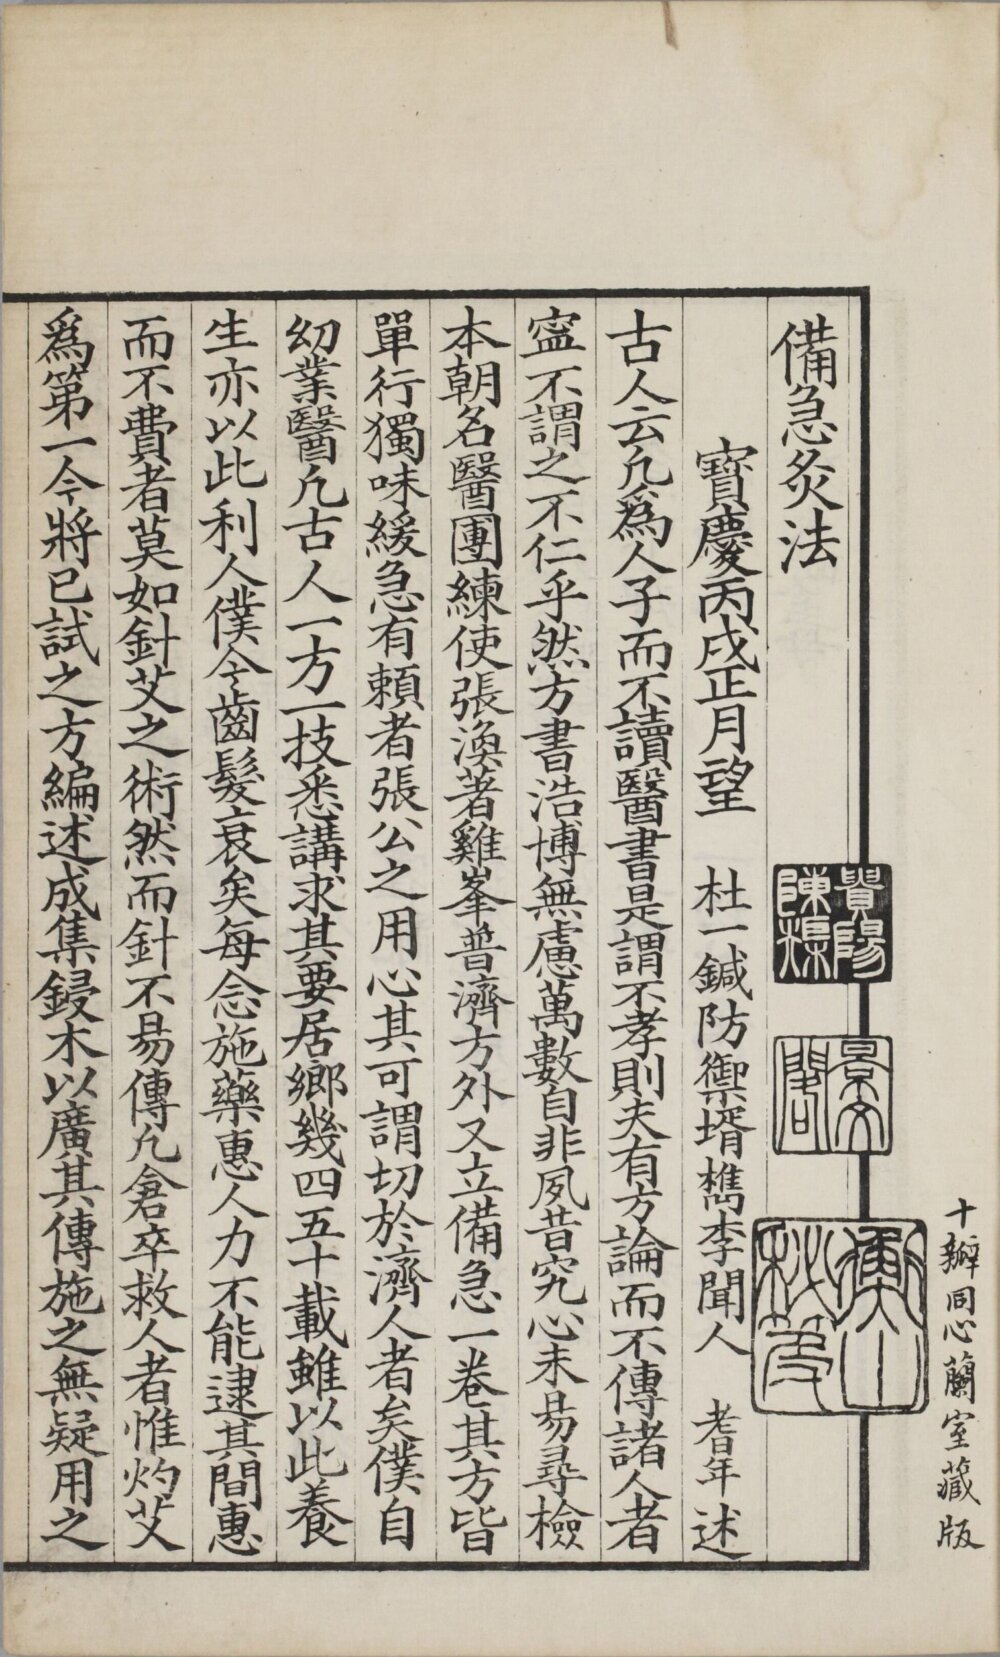 十瓣同心蘭室藏版
備急灸法
寶慶丙戌正月望 杜一鍼防禦壻檇李聞人 耆年 述
古人云凡爲人子而不讀醫書是謂不孝則夫有方論而不傳諸人者
寧不謂之不仁乎然方書浩博無慮萬數自非夙昔究心未易尋檢
本朝名醫團練使張渙著雞峯普濟方外又立備急一卷其方皆
單行獨味緩急有賴者張公之用心其可謂切於濟人者矣僕自
幼業醫凡古人一方一技悉講求其要居鄉幾四五十載雖以此養
生亦以此利人僕今齒髮衰矣每念施藥惠人力不能逮其間惠
而不費者莫如針艾之術然而針不易傳凡倉卒救人者惟灼艾
爲第一今將已試之方編述成集鋟木以廣其傳施之無疑用之
貴陽
陳榘
景文
閣
衡山